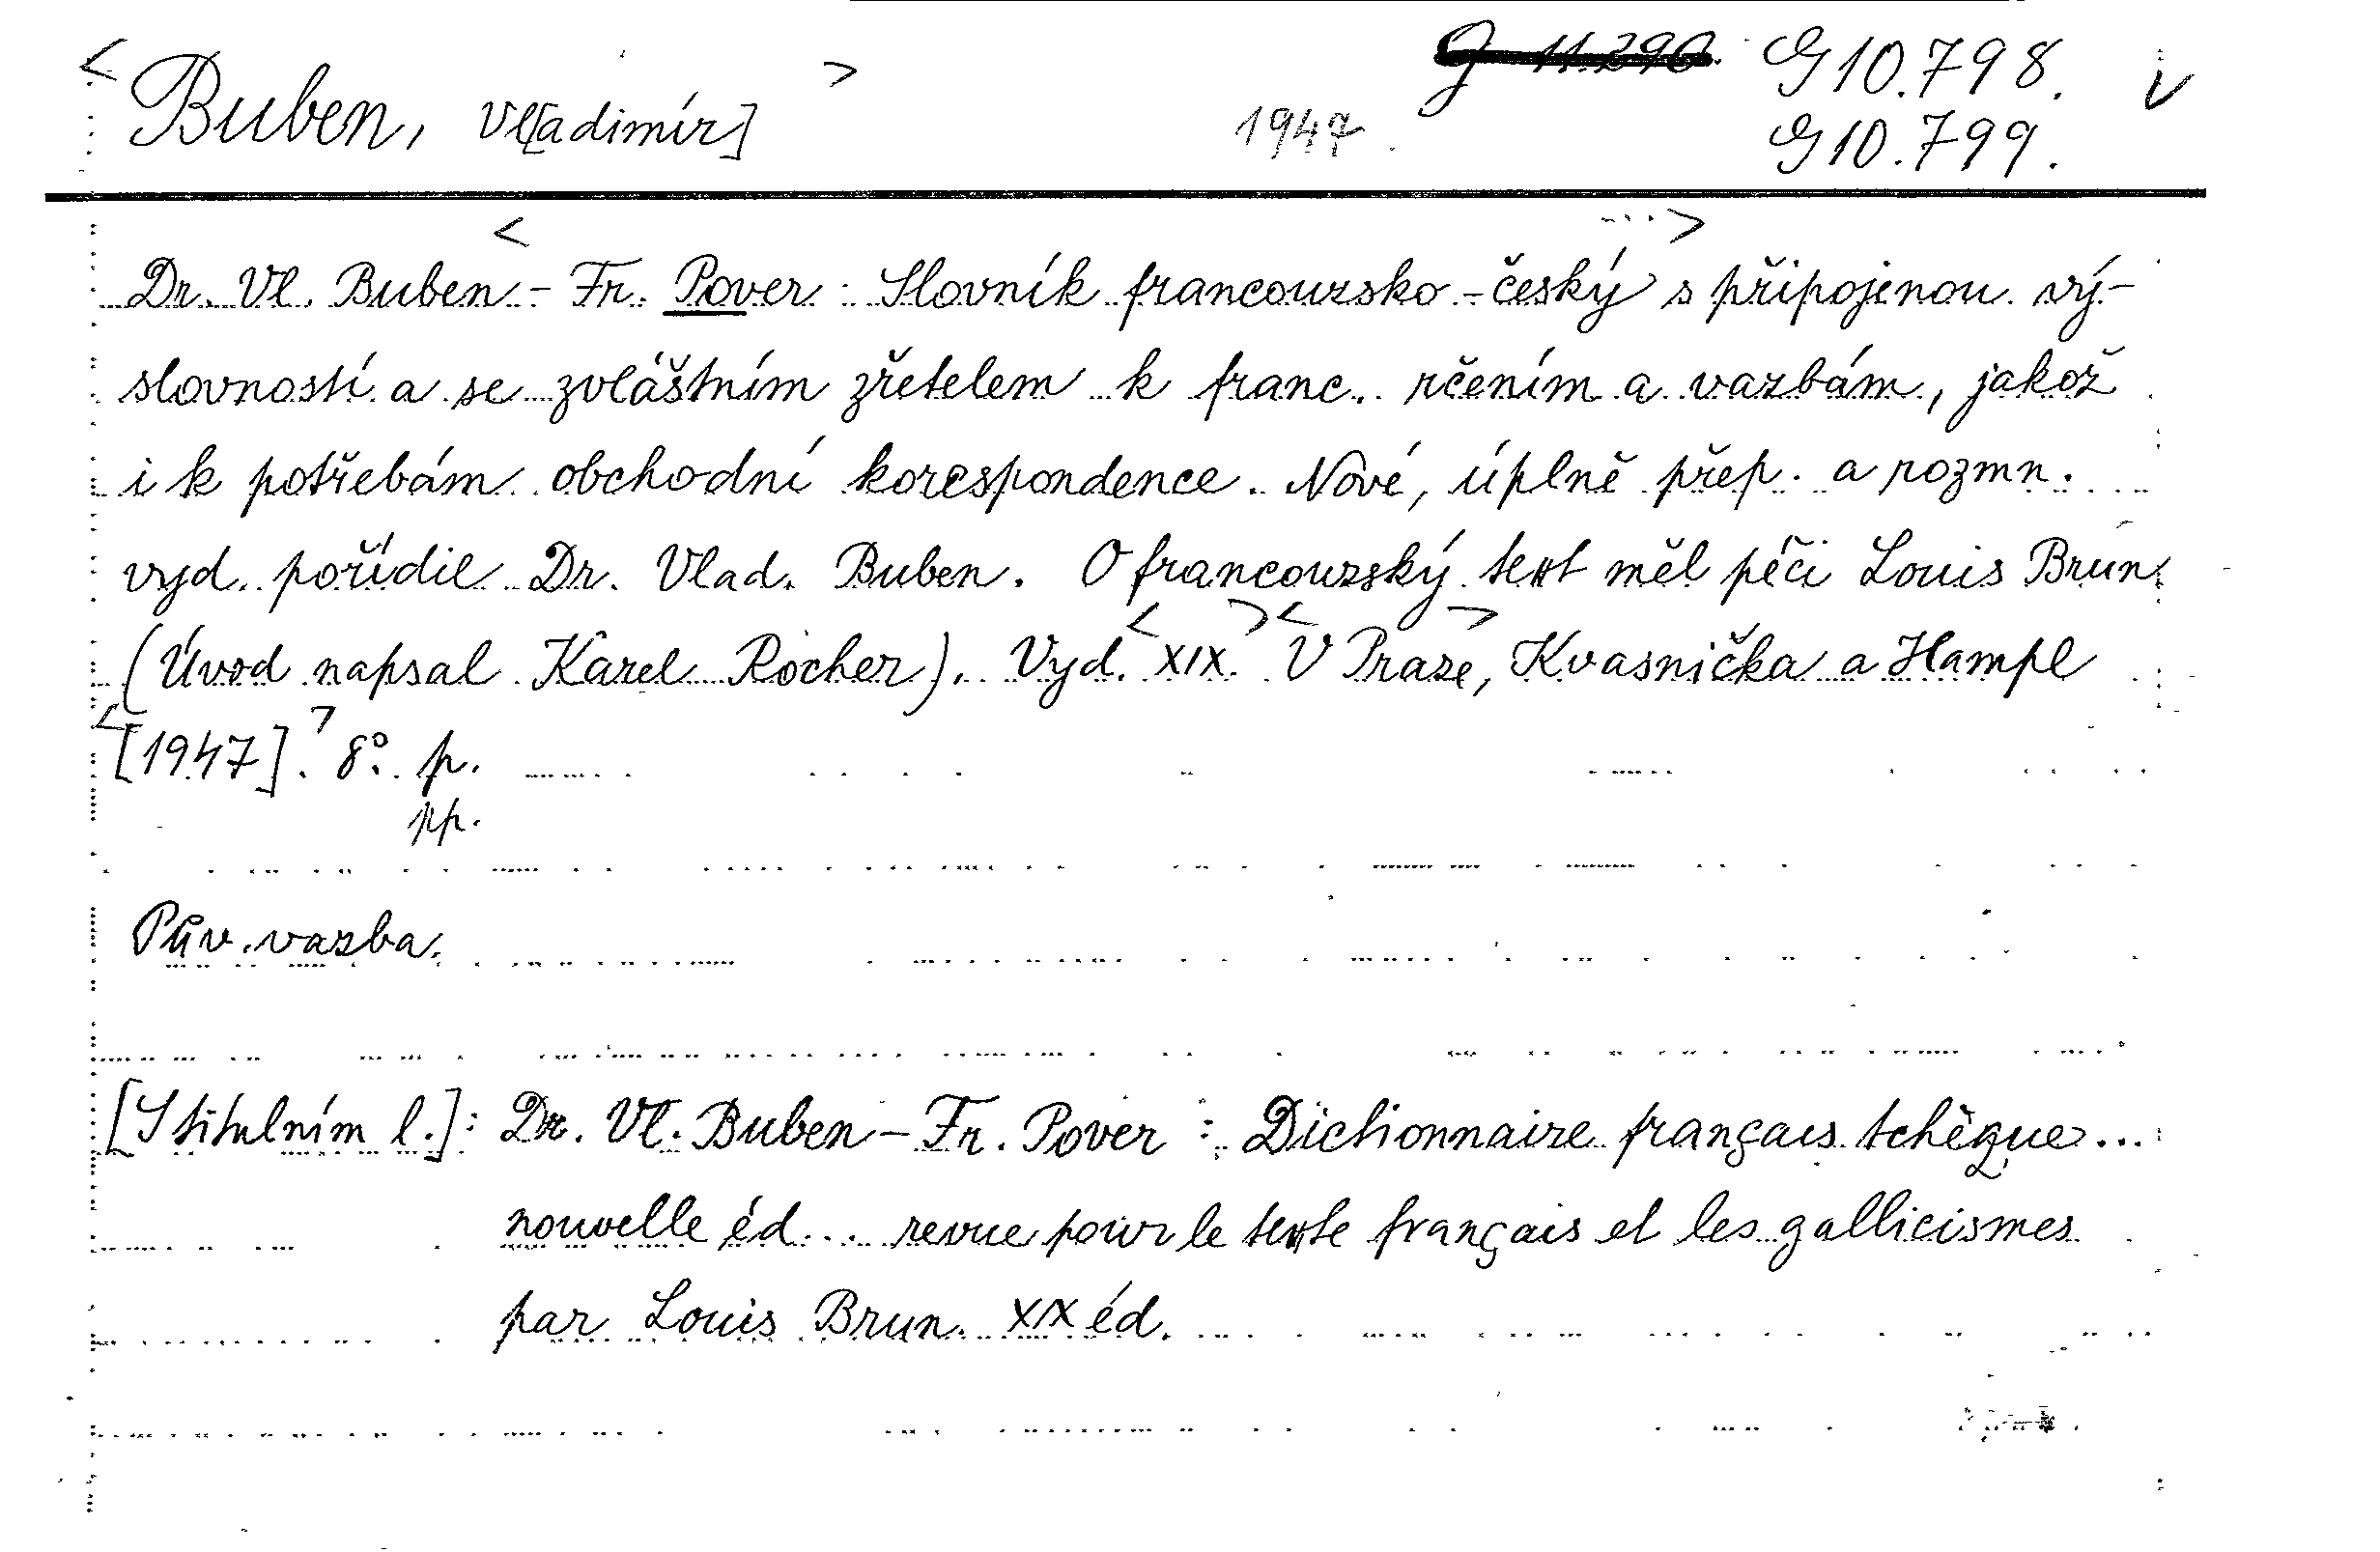 <Buben, Vl[adimír]>
1947.
G 10.798. v
G 10.799.
Dr. Vl. Buben <- Fr. Pover: Slovník francouzsko-český> s připojenou vý-
slovností a se zvláštním zřetelem k franc. rčením a vazbám, jakož
i k potřebám obchodní korespondence. Nové, úplně přep. a rozmn.
vyd. pořídil Dr. Vlad. Buben. O francouzský text měl péči Louis Brun.
(Úvod napsal Karel Rocher). Vyd. <XIX.> <V Praze>, Kvasnička a Hampl
<[1947].> 8° p.
pp.
Pův. vazba.
[S titulním l.]: Dr. Vl. Buben - Fr. Pover: Dictionnaire français tchèque...
nouvelle éd... revue pour le texte français et les gallicismes
par Louis Brun. XIX éd.